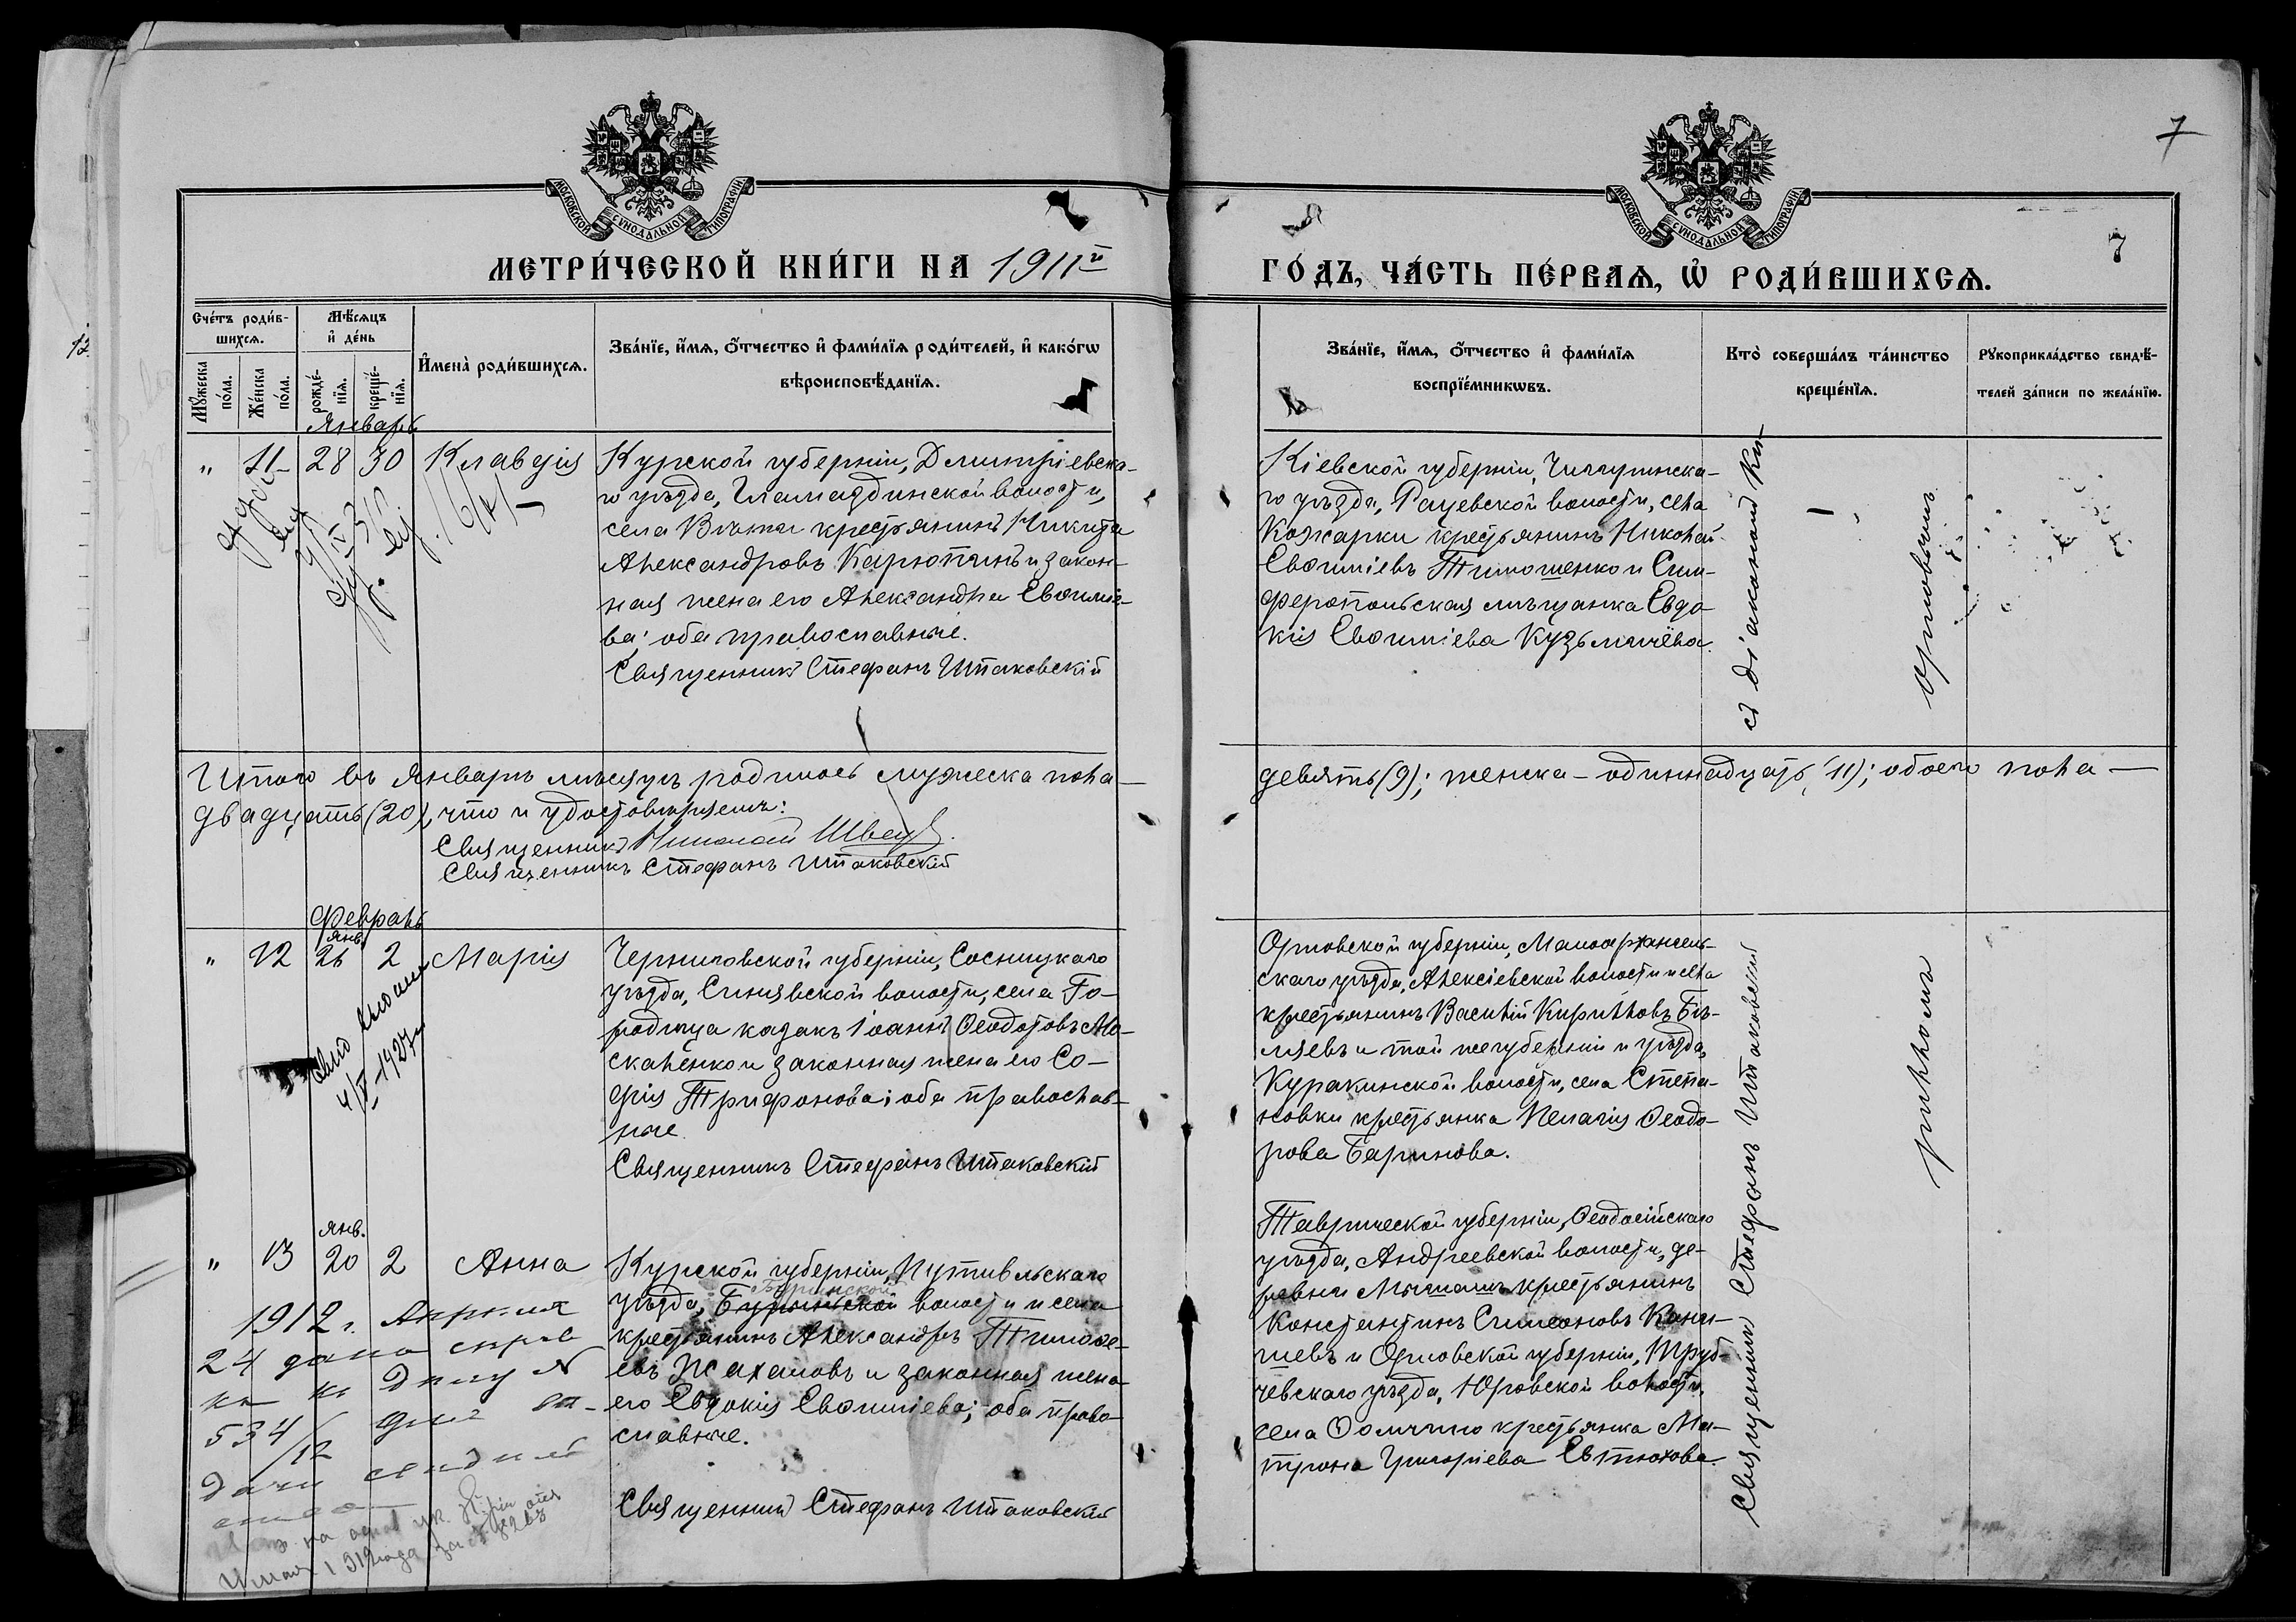 7
МОСКОВСКОЙ СѴНОДАЛЬНОЙ ТИПОГРАФІИ
МОСКОВСКОЙ СѴНОДАЛЬНОЙ ТИПОГРАФІИ
7
МЕТРИ́ЧЕСКОЙ КНИ́ГИ НА 1911й
ГО́ДЪ, ЧА́СТЬ ПЕ́РВАѦ, Ѡ҆ РОДИ́ВШИХСѦ.
Сче́тъ роди́в-
шихсѧ.
Мꙋ́жеска по́ла.
Же́нска по́ла.
Мѣ́сѧцъ
и҆ де́нь
рожде́-
нїѧ.
креще́-
нїѧ.
И҆мена̀ роди́вшихсѧ.
Зва́нїе, и҆́мѧ, ѻ҆́тчество и҆ фами́лїѧ роди́телей, и҆ како́гѡ
вѣроисповѣ́данїѧ.
Зва́нїе, и҆́мѧ, ѻ҆́тчество и҆ фами́лїѧ
воспрїе́мникѡвъ.
Кто̀ соверша́лъ та́инство
креще́нїѧ.
Рꙋкоприкла́дство свидѣ́-
телей за́писи по жела́нїю.
Январь
" 11 28 30 Клавдія
Курской губерніи, Дмитріевска-
го уѣзда, волости,
села крестьянинъ Никита
Александровъ Карюпинъ и закон-
ная жена его Александра Евѳиміе-
ва; оба православные.
Священникъ Стефанъ Штаковскій
Кіевской губерніи, Чигиринска-
го уѣзда, Рацевской волости, села
Кожарки крестьянинъ Николай
Евѳиміевъ Тимошенко и Сим-
феропольская мѣщанка Евдо-
кія Евѳиміева Кузьмичёва.
съ діакономъ Ки-
рилломъ
Орловымъ
Итого въ Январѣ мѣсяцѣ родилось мужеска пола —
девять (9); женска – одиннадцать (11); обоего пола —
двадцать (20), что и удостовѣряемъ:
Священникъ Николай Швецъ.
Священникъ Стефанъ Штаковскій
Февраль
янв.
" 12 26 2 Марія
4/II – 1927
Черниговской губерніи, Сосницкаго
уѣзда, Синявской волости, села Го-
родища казакъ Іоаннъ Ѳеодотовъ Мо-
скаленко и законная жена его Со-
фія Трифонова; оба православ-
ные.
Священникъ Стефанъ Штаковскій
Орловской губерніи, Малоархангель-
скаго уѣзда, Алексіевской волости и села
крестьянинъ Василій Кирилловъ Бѣ-
ляевъ и той же губерніи и уѣзда,
Куракинской волости, села Степа-
новки крестьянка Пелагія Ѳеодо-
рова Баринова.
Священникъ Стефанъ Штаковскій
янв.
" 13 20 2 Анна
Курской губерніи, Путивльскаго
Бурынской
уѣзда, Бурынской волости и села
крестьянинъ Александръ Тимоѳе-
евъ Жахаловъ и законная жена
его Евдокія Евѳиміева; оба право-
славные.
Священникъ Стефанъ Штаковскій
Таврической губерніи, Ѳеодосійскаго
уѣзда, Андреевской волости, де-
ревни крестьянинъ
Константинъ Симеоновъ Кани-
щевъ и Орловской губерніи, Труб-
чевскаго уѣзда, Юровской волости,
села крестьянка Ма-
трона Григоріева Евтюхова.
1912 г. Апрѣля
24 дана справ
ка къ дѣлу N
534/12 для вы-
дачи